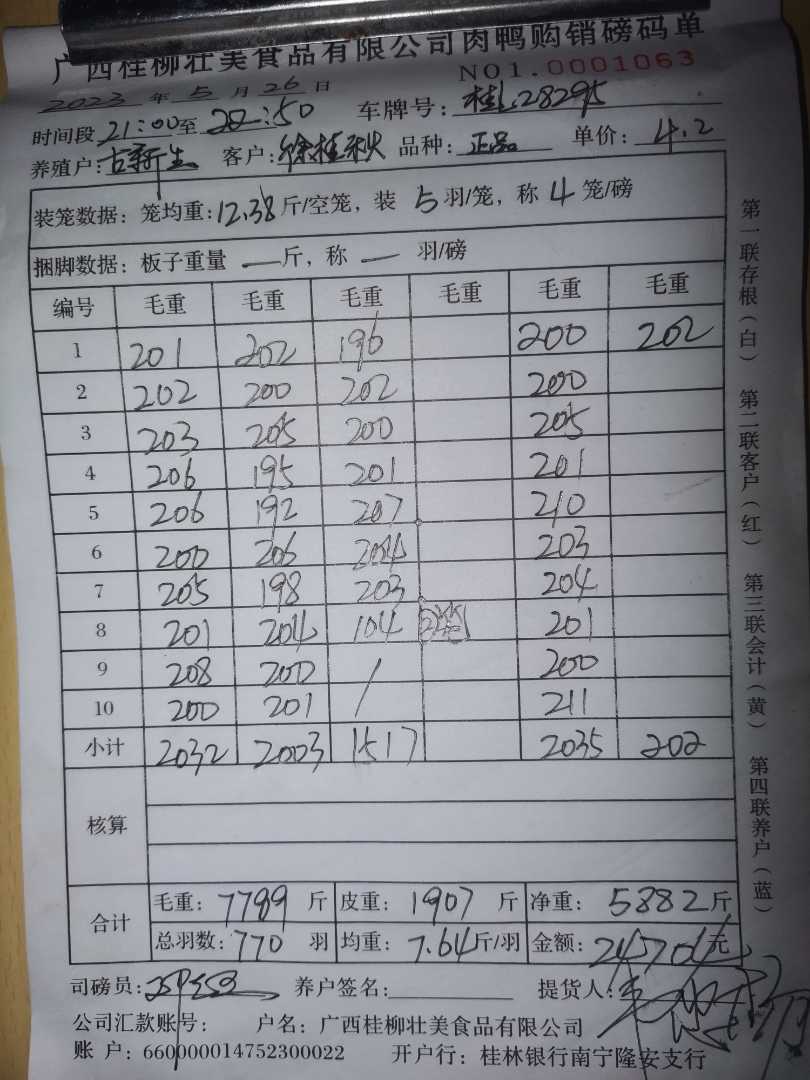 广西桂柳壮美食品有限公司肉鸭购销磅码单
NO1.0001063
2023 年 5 月 26 日
时间段 21:00 至 22:50 车牌号: 桂L28295
养殖户: 古新生 客户: 徐桂秋 品种: 正品 单价: 4.2
装笼数据: 笼均重: 12.38 斤/空笼, 装 5 羽/笼, 称 4 笼/磅
捆脚数据: 板子重量 — 斤, 称 — 羽/磅
编号 毛重 毛重 毛重 毛重 毛重 毛重
1 201 202 196 200 202
2 202 200 202 200
3 203 205 200 205
4 206 195 201 201
5 206 192 207 210
6 200 206 204 203
7 205 198 203 204
8 201 204 104 201
9 208 200 / 200
10 200 201 211
小计 2032 2003 1517 2035 202
核算
合计 毛重: 7789 斤 皮重: 1907 斤 净重: 5882 斤
总羽数: 770 羽 均重: 7.64 斤/羽 金额: 24704 元
司磅员: 养户签名: 提货人:
公司汇款账号: 户名: 广西桂柳壮美食品有限公司
账 户: 660000014752300022 开户行: 桂林银行南宁隆安支行
第一联存根(白) 第二联客户(红) 第三联会计(黄) 第四联养户(蓝)